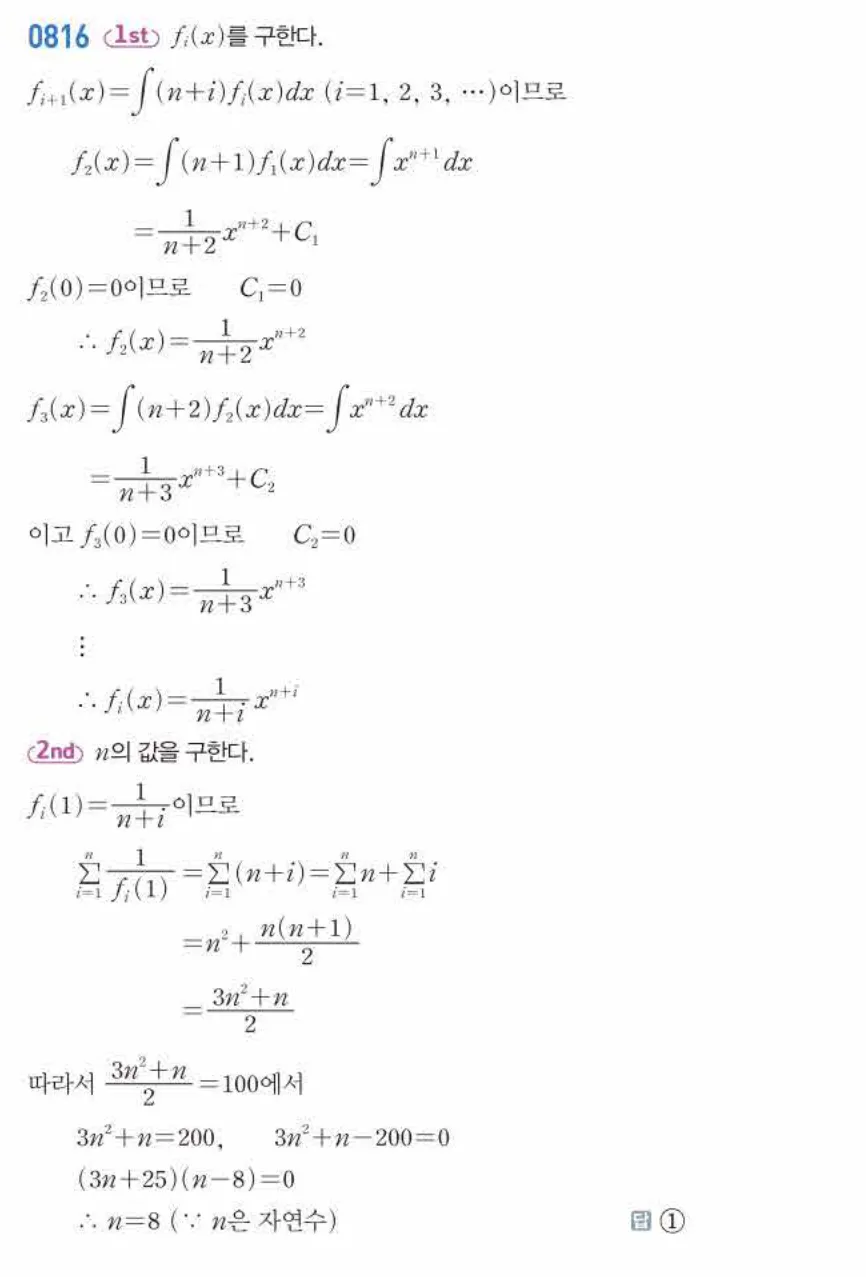 0816 1st fᵢ(x)를 구한다.
fᵢ₊₁(x)=∫(n+i)fᵢ(x)dx (i=1, 2, 3, …)이므로
f₂(x)=∫(n+1)f₁(x)dx=∫xⁿ⁺¹dx
=1/(n+2) xⁿ⁺²+C₁
f₂(0)=0이므로 C₁=0
∴ f₂(x)=1/(n+2) xⁿ⁺²
f₃(x)=∫(n+2)f₂(x)dx=∫xⁿ⁺²dx
=1/(n+3) xⁿ⁺³+C₂
이고 f₃(0)=0이므로 C₂=0
∴ f₃(x)=1/(n+3) xⁿ⁺³
⋮
∴ fᵢ(x)=1/(n+i) xⁿ⁺ⁱ
2nd n의 값을 구한다.
fᵢ(1)=1/(n+i)이므로
∑ⁿᵢ₌₁ 1/fᵢ(1)=∑ⁿᵢ₌₁(n+i)=∑ⁿᵢ₌₁n+∑ⁿᵢ₌₁i
=n²+n(n+1)/2
=(3n²+n)/2
따라서 (3n²+n)/2=100에서
3n²+n=200, 3n²+n−200=0
(3n+25)(n−8)=0
∴ n=8 (∵ n은 자연수) 답 ①